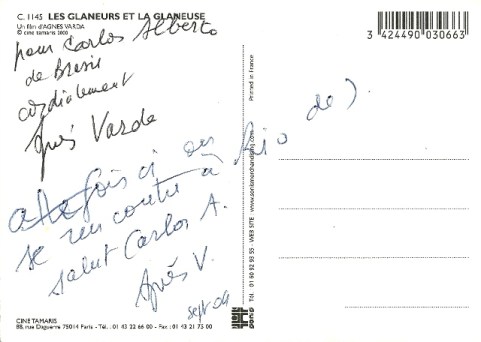 C. 1145 LES GLANEURS ET LA GLANEUSE
Un film d'AGNES VARDA
© cine tamaris 2000
pour Carlos Alberto
de Bresil
cordialement
Agnès Varda
fois ci on
se rencontre à Rio de J.
salut Carlos A.
Agnès V.
sept 04
CINE TAMARIS
88, rue Daguerre 75014 Paris - Tél. : 01 43 22 66 00 - Fax : 01 43 21 75 00
3 424490 030663
Printed in France
Tél : 01 60 92 93 55 - WEB SITE